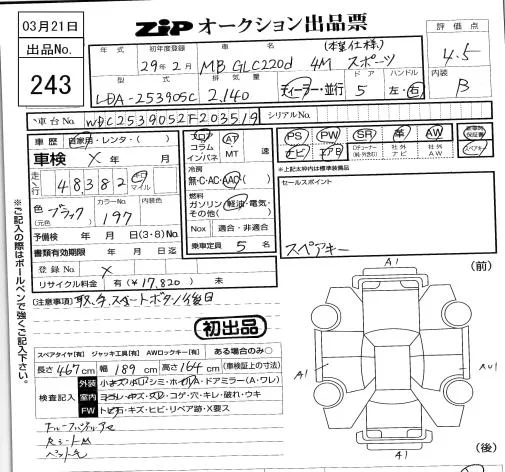 03月21日
ZIP オークション出品票
出品No.
243
年式
初年度登録
29年2月
車名
MB GLC220d 4M スポーツ
(本革仕様)
評価点
4.5
型式
LDA-253905C
排気量
2,140
ディーラー・並行
ドア
5
ハンドル
左・右
内装
B
車台No.
WDC2539052F203519
シリアルNo.
車歴 自家用・レンタ・( )
車検 X 年 月
走行 48382 km マイル
色 (元色) ブラック
カラーNo. 197
内装色
予備検 年 月 日(3・8)No.
書類有効期限 年 月 日迄
登録No. X
リサイクル料金 有 (¥17,820) 未
フロア コラム インパネ
AT MT 速
冷房
無・C・AC・AAC
燃料
ガソリン・軽油・電気・その他( )
Nox 適合・非適合
乗車定員 5 名
PS PW SR 革 AW
ナビ エアB
Dチューナー (純・外含む)
社外ナビ
社外AW
新車時保証書
スペアキー
*上記太枠内は標準装備品
セールスポイント
スペアキー
※ご記入の際はボールペンで強くご記入下さい。
(注意事項) 取、ナ、スタートボタン後日
初出品
スペアタイヤ[有] ジャッキ工具[有] AWロックキー[有] ある場合のみ○
長さ 467 cm 幅 189 cm 高さ 164 cm (車検証上の寸法)
検査記入
外装 小キズ・ホコリシミ・ホイール・ドアミラー(A・ワレ)
室内 ヨゴレ・キズ・スレ・コゲ・穴・キレ・破れ・ウキ
FW トビ石・キズ・ヒビ・リペア跡・X要ス
A1
(前)
A1
AU1
A1
(後)